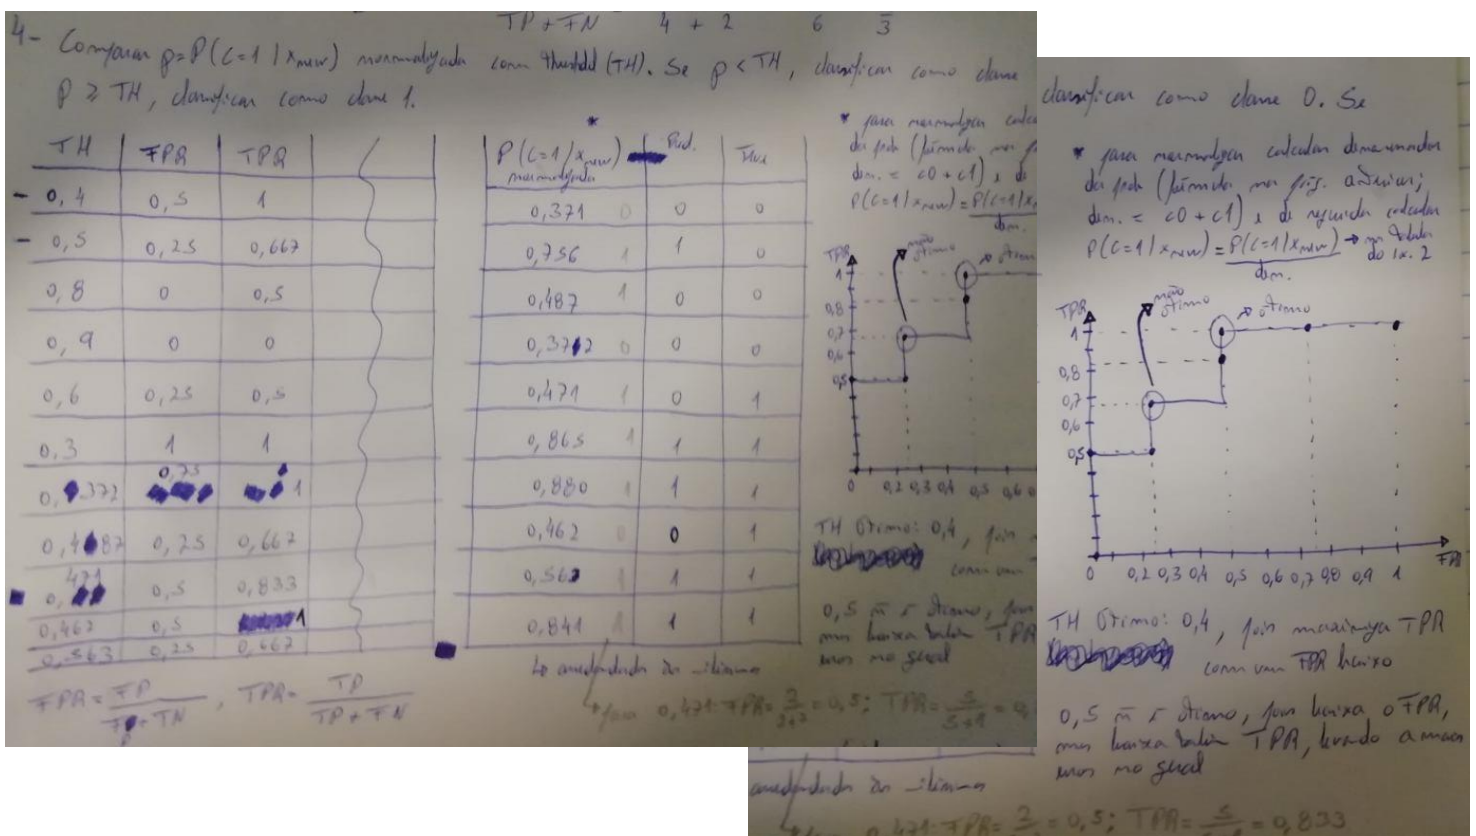 TP + FN 4 + 2 6 3
4- Comparar p=P(C=1 | xnew) normalizada com threshold (TH). Se p < TH, classificar como classe
p ≥ TH, classificar como classe 1.
TH FPR TPR
0,4 0,5 1
0,5 0,25 0,667
0,8 0 0,5
0,9 0 0
0,6 0,25 0,5
0,3 1 1
0,372 0,75 1
0,487 0,25 0,667
0,471 0,5 0,833
0,462 0,5 1
0,563 0,25 0,667
FPR = FP / FP + TN , TPR = TP / TP + FN
*
P(C=1 / xnew) normalizada Pred. True
0,371 0 0 0
0,756 1 1 0
0,487 1 0 0
0,372 0 0 0
0,471 1 0 1
0,865 1 1 1
0,880 1 1 1
0,462 0 0 1
0,563 1 1 1
0,841 1 1 1
↳ arredondado às milésimas
↳ para 0,471: FPR = 2 / 2+2 = 0,5; TPR = 5 / 5+1 = 0,
* para normalizar calcu
da prob (fórmula na p
den. = c0 + c1) e de
P(C=1 / xnew) = P(C=1 / x
den.
TPR
não ótimo
ótimo
1
0,8
0,7
0,6
0,5
0 0,2 0,3 0,4 0,5 0,6 0
TH Ótimo: 0,4, pois
com um
0,5 ñ é ótimo, pois
mas baixa também TPR
erros no geral
classificar como classe 0. Se
* para normalizar calcular denominador
da prob (fórmula na pág. anterior;
den. = c0 + c1) e de seguida calcular
P(C=1 / xnew) = P(C=1 / xnew) / den. → na tabela do ex. 2
TPR
não ótimo
ótimo
1
0,8
0,7
0,6
0,5
0 0,2 0,3 0,4 0,5 0,6 0,7 0,8 0,9 1 FPR
TH Ótimo: 0,4, pois maximiza TPR
com um FPR baixo
0,5 ñ é ótimo, pois baixa o FPR,
mas baixa também TPR, levando a mais
erros no geral
arredondado às milésimas
0,471: FPR = 2 = 0,5; TPR = 5 = 0,833